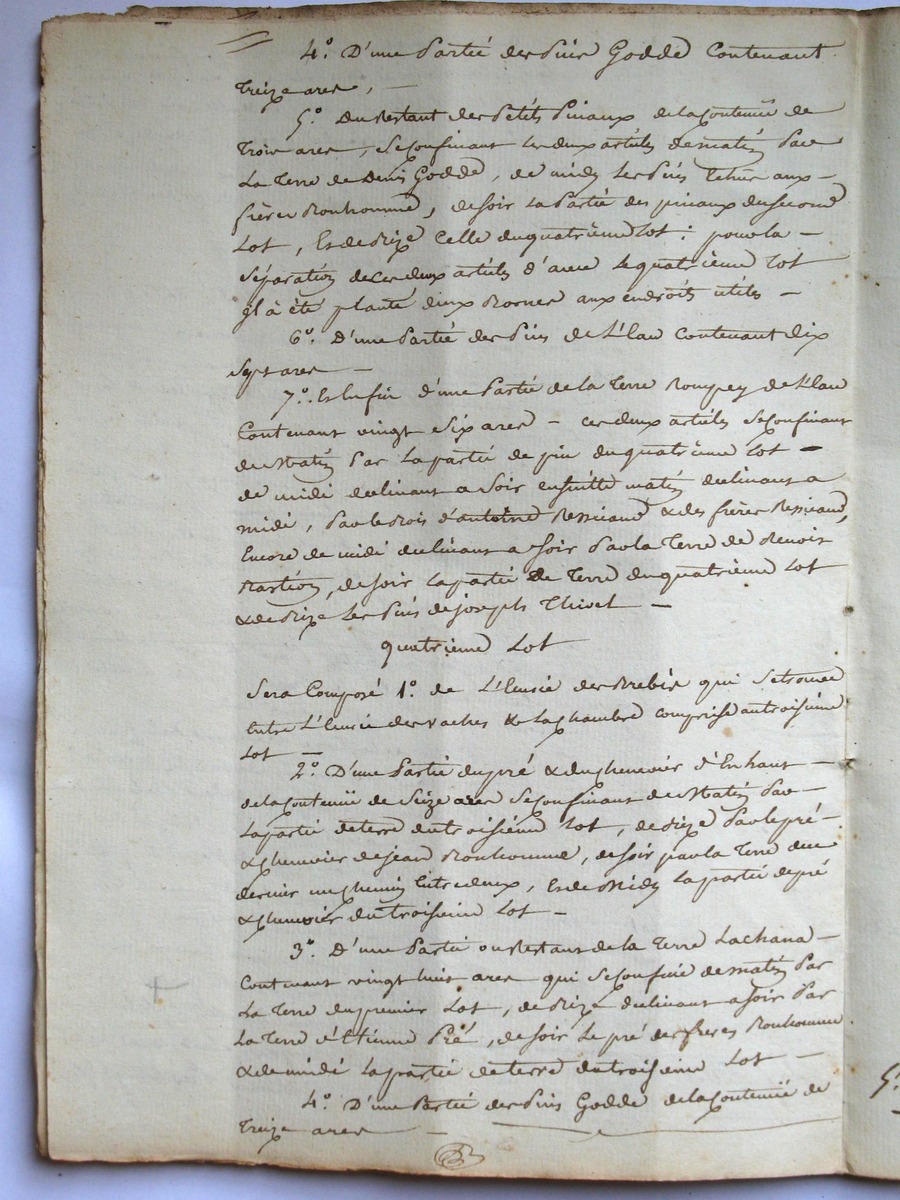 4.° D'une Partie des Pins Godde Contenant
Treize ares, —
5.° Du Restant des Petits Pinaux de la Contenue de
Trois ares, se Confinant ces deux articles de matin Par
La Terre de Denis Godde, de midy Les Pins échus aux —
frères Bonhomme, de soir La Partie des pinaux du second
Lot, Et de Bize Celle du quatrième Lot: pour la —
séparation de ces deux articles d'avec Le quatrième Lot
Il à été planté deux Bornes aux endroits utiles —
6.° D'une Partie des Pins de L'Eau Contenant dix
sept ares —
7.° Et Enfin d'une Partie de la Terre Rompey de L'Eau
Contenant vingt six ares — ces deux articles se Confinant
de Matin Par La partie de pin du quatrième Lot —
de midi declinant a soir ensuitte matin declinant a
midi, Par le Bois d'antoine & des frères
Encore de midi declinant a soir Par la Terre de Benoit
de soir La partie de Terre du quatrième Lot
& de Bize Les Pins de joseph Thivel —
quatrième Lot
Sera Composé 1.° de L'Ecurie des Brebis qui se trouve
Entre L'Ecurie des vaches & La chambre comprise au troisième
Lot —
2.° D'une Partie du pré & du chenevier d'En haut —
de la Contenue de Seize ares se Confinant de Matin Par —
La partie de terre du troisième Lot, de Bize Par le pré —
& chenevier de jean Bonhomme, de soir par la Terre du
dernier un chemin Entre deux, Et de Midy La partie de pré
& chenevier du troisième Lot —
3.° D'une Partie ou Restant de la Terre Lachana —
Contenant vingt huit ares qui se Confine de matin Par
La Terre du premier Lot, de Bize declinant a soir Par
La Terre d'Etienne Pré, de soir Le pré des freres Bonhomme
& de midi La partie de terre du troisième Lot —
4.° D'une Partie des Pins Godde de la Contenue de
Treize ares —